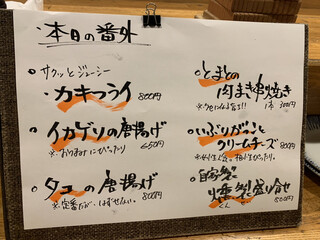 ・本日の番外
サクッとジューシー
・カキフライ 800円
・イカゲソの唐揚げ
※おつまみにぴったり 650円
・タコの唐揚げ
※定番だが、はずせない。 800円
・とまとの
肉まき串焼き
1本 300円
・いぶりがっこと
クリームチーズ
800円
・自家製
燻製盛り合せ
くん 800円